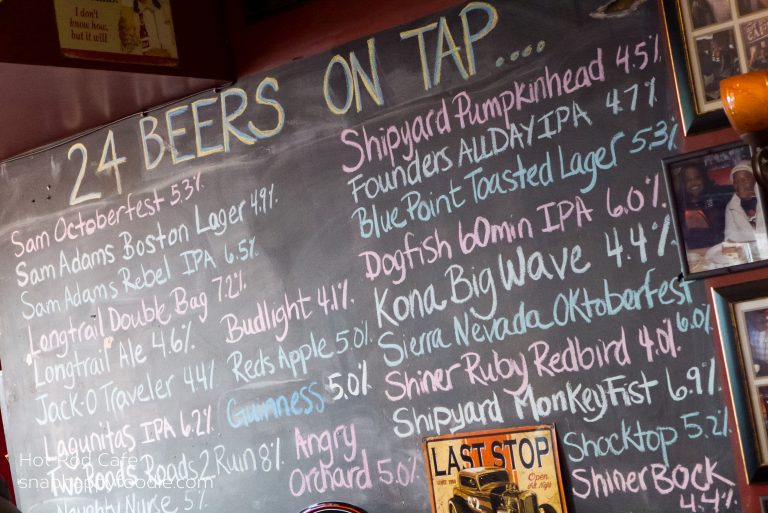 I don't
know how,
but it will
24 BEERS ON TAP....
Sam Octoberfest 5.3%
Sam Adams Boston Lager 4.9%
Sam Adams Rebel IPA 6.5%
Longtrail Double Bag 7.2%
Longtrail Ale 4.6%
Jack-O Traveler 4.4%
Lagunitas IPA 6.2%
Two Roads Roads 2 Ruin 8%
Naughty Nurse 5%
Budlight 4.1%
Reds Apple 5.0%
Guinness 5.0%
Angry
Orchard 5.0%
Shipyard Pumpkinhead 4.5%
Founders ALL DAY IPA 4.7%
Blue Point Toasted Lager 5.3%
Dogfish 60min IPA 6.0%
Kona Big Wave 4.4%
Sierra Nevada Oktoberfest
6.0%
Shiner Ruby Redbird 4.0%
Shipyard MonkeyFist 6.9%
Shocktop 5.2%
Shiner Bock
4.4%
LAST STOP
Open
All Night
Hot Rod Cafe